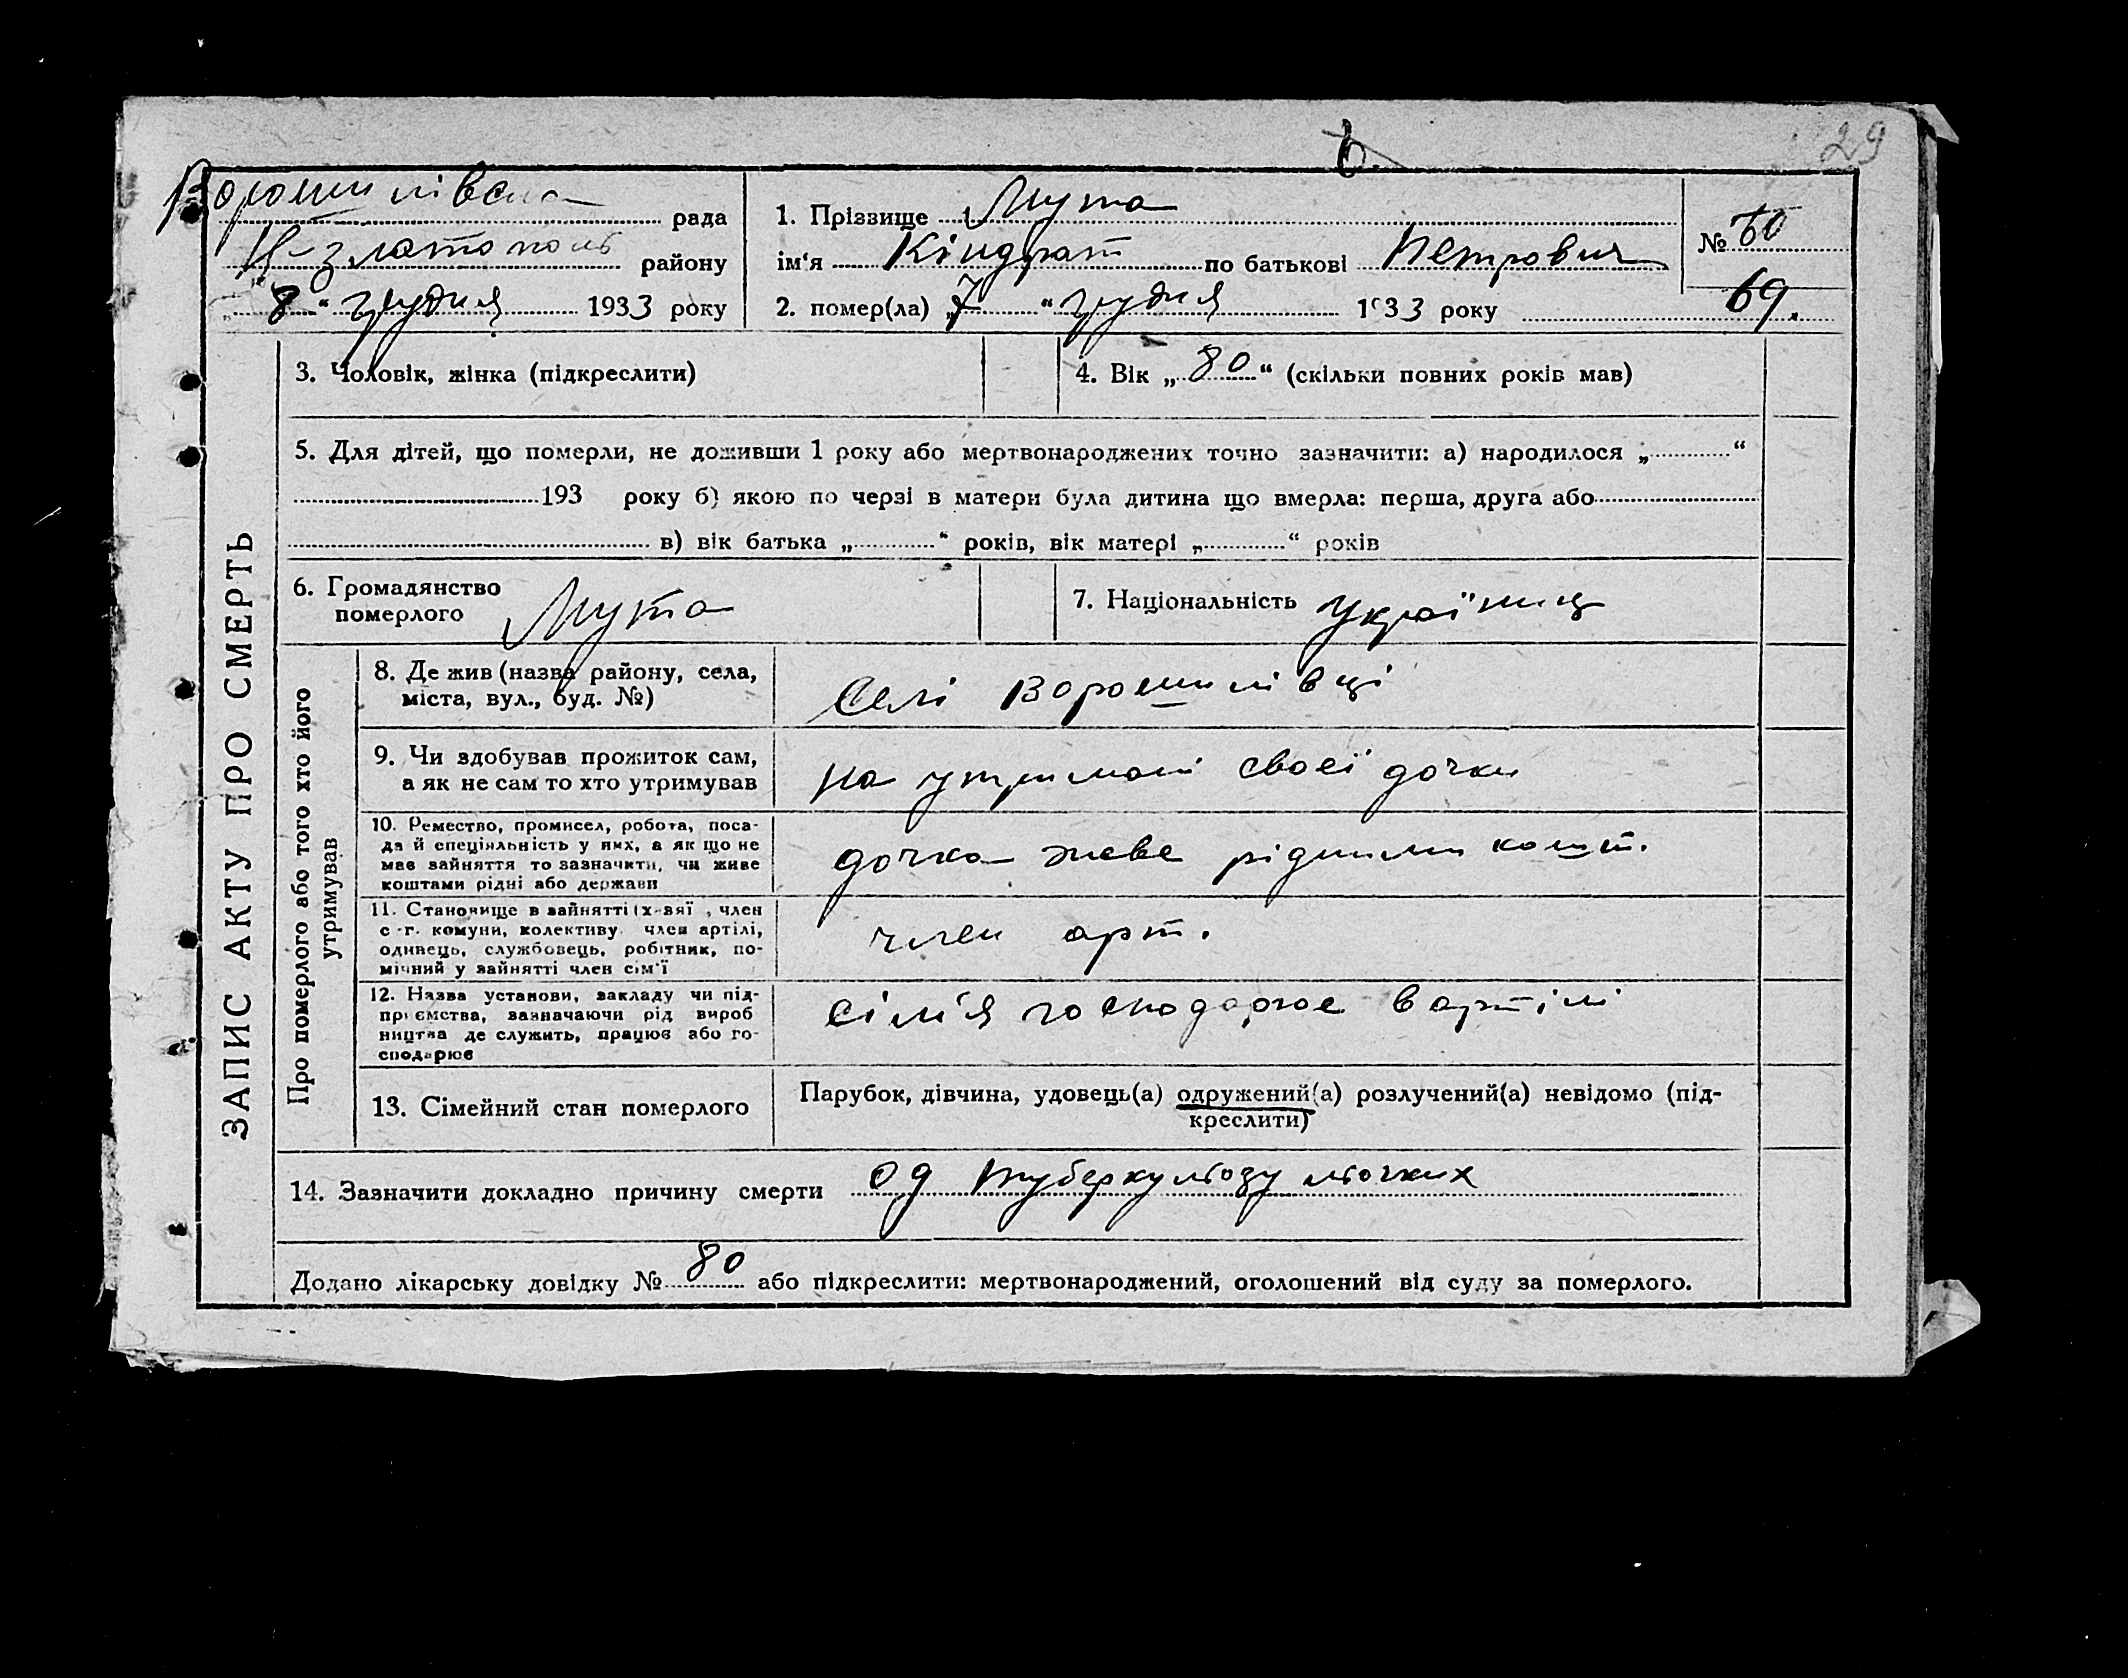 29
Ворошилівська рада
Н-златополь району
„8“ грудня 1933 року
1. Прізвище Мута
ім‘я Кіндрат по батькові Петрович
2. помер(ла) „7“ грудня 1933 року
№
69.
ЗАПИС АКТУ ПРО СМЕРТЬ
3. Чоловік, жінка (підкреслити)
4. Вік „80“ (скільки повних років мав)
5. Для дітей, що померли, не доживши 1 року або мертвонароджених точно зазначити: а) народилося „ “
193 року б) якою по черзі в матери була дитина що вмерла: перша, друга або
в) вік батька „ “ років, вік матері „ “ років
6. Громадянство
померлого Мута
7. Національність українц
Про померлого або того хто його
утримував
8. Де жив (назва району, села,
міста, вул., буд. №)
Селі Ворошилівці
9. Чи здобував прожиток сам,
а як не сам то хто утримував
на утримані своєї дочки
10. Ремество, промисел, робота, поса-
да й спеціяльність у них, а як що не
має зайняття то зазначити, чи живе
коштами рідні або держави
дочка живе рідними кошт.
11. Становище в зайнятті (х-вяї , член
с-г. комуни, колективу член артілі,
одинець, службовець, робітник, по-
мічний у зайнятті член сім‘ї
член арт.
12. Назва установи, закладу чи під-
приємства, зазначаючи рід вироб
ництва де служить, працює або го-
сподарює
сім‘я господарює в артілі
13. Сімейний стан померлого
Парубок, дівчина, удовець(а) одружений(а) розлучений(а) невідомо (під-
креслити)
14. Зазначити докладно причину смерти од туберкульозу льочких
Додано лікарську довідку № 80 або підкреслити: мертвонароджений, оголошений від суду за померлого.